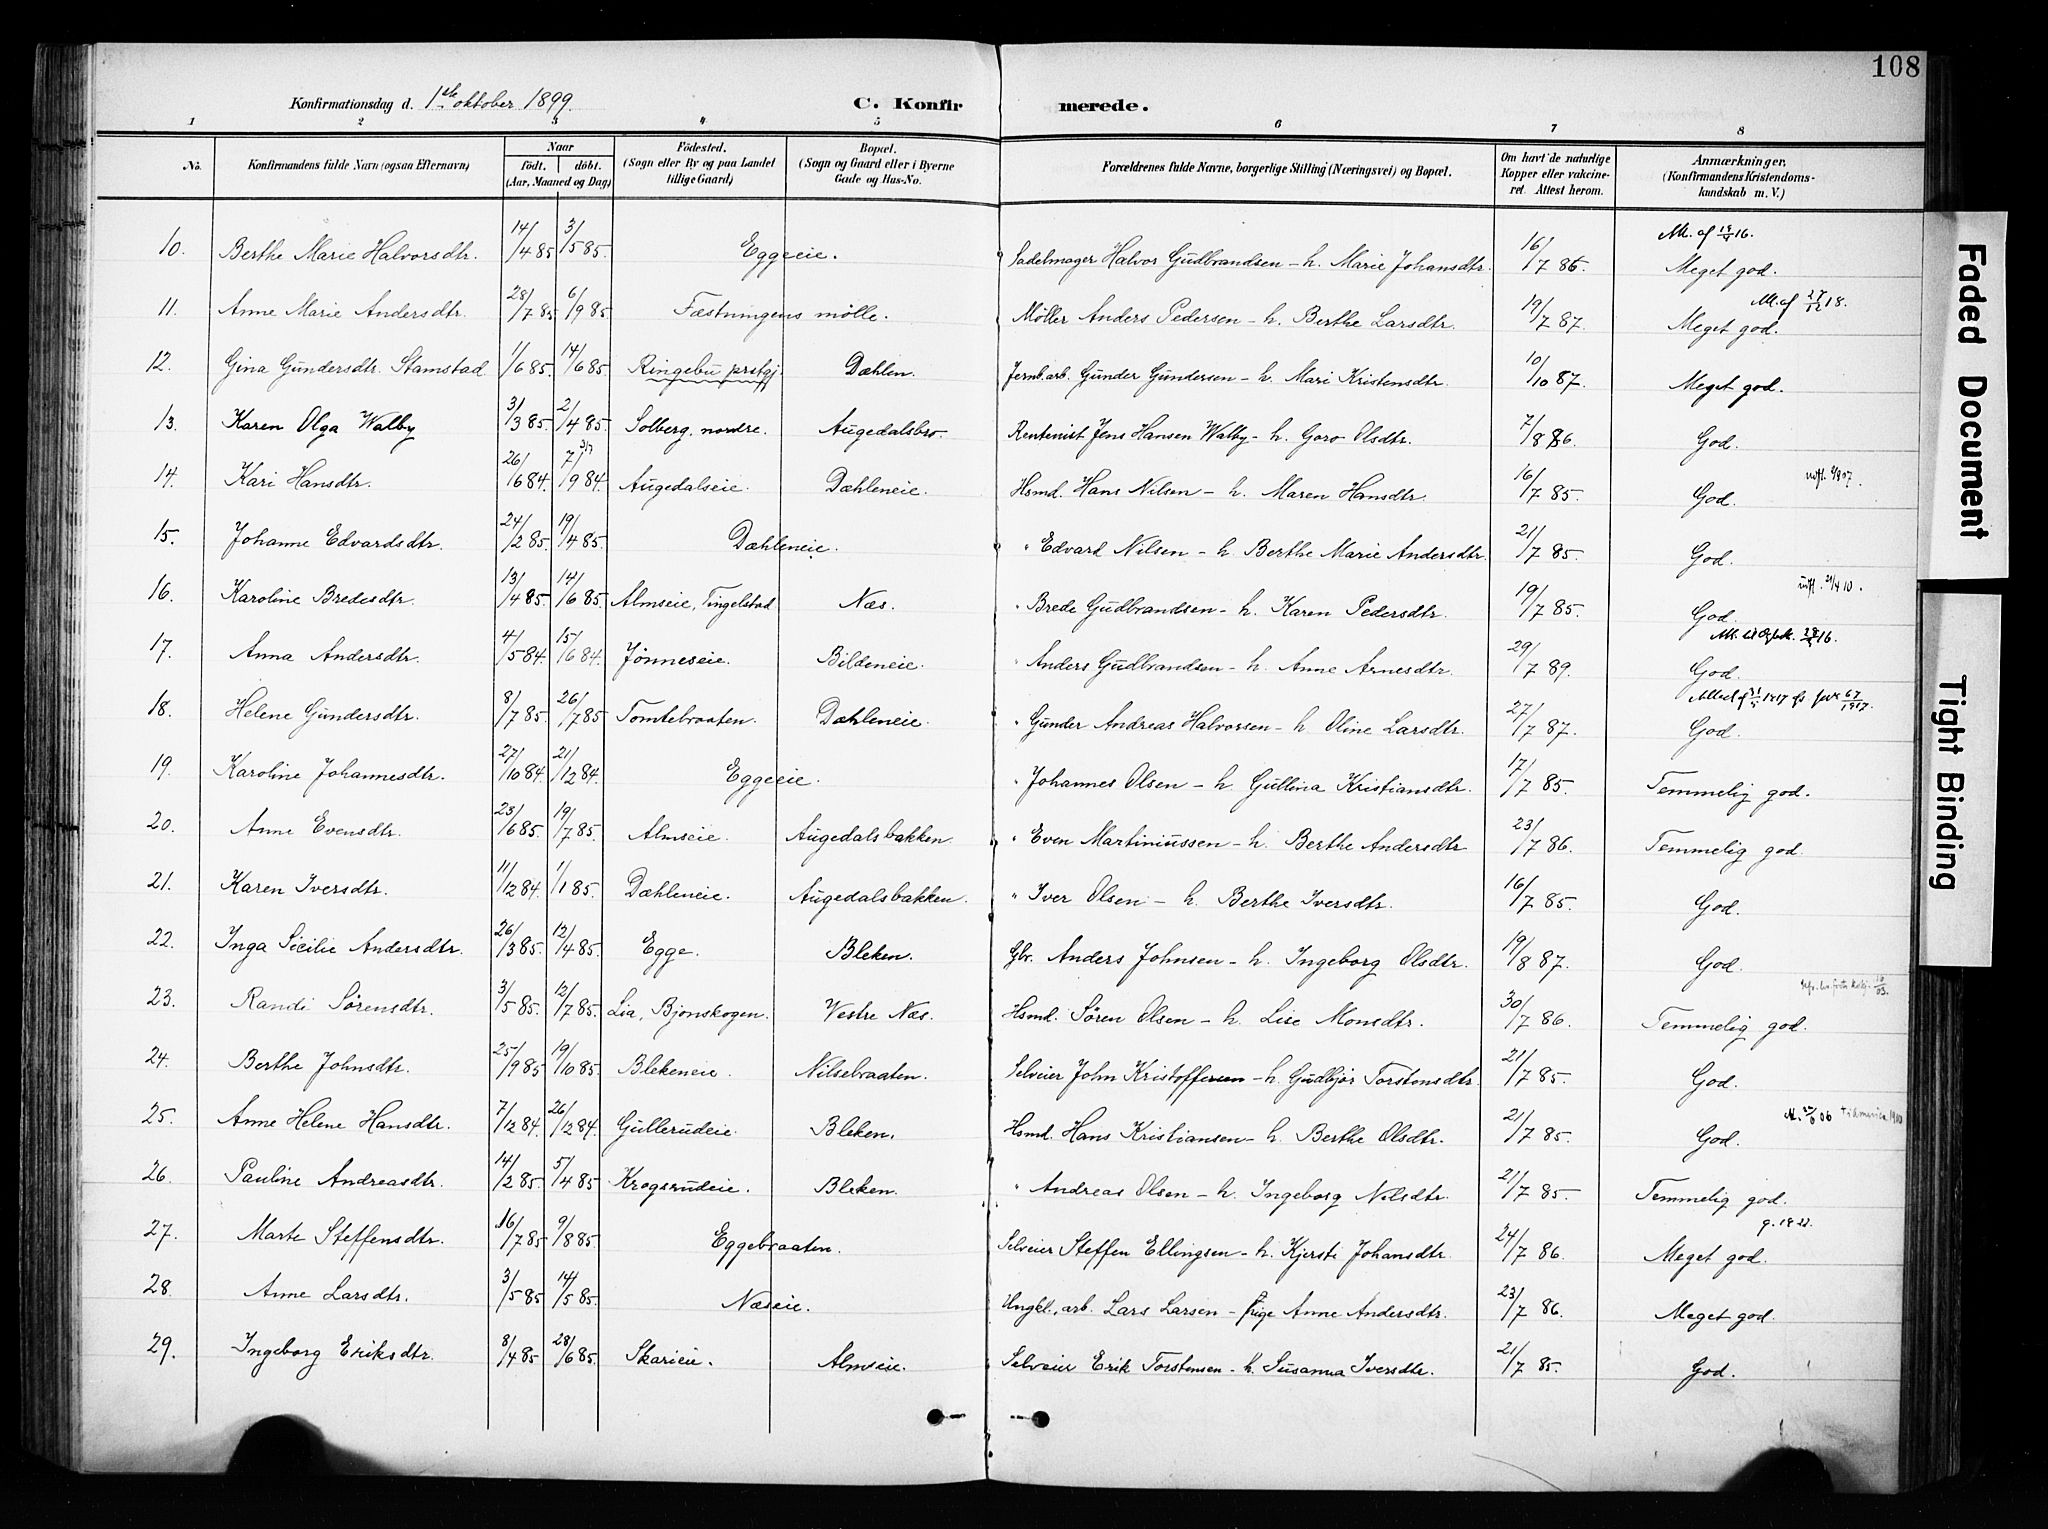 108
Konfirmationsdag d. 1ste oktober 1899. C. Konfirmerede.
1 2 3 4 5 6 7 8
No. Konfirmandens fulde Navn (ogsaa Efternavn) Naar födt. döbt. (Aar, Maaned og Dag) Födested. (Sogn eller By og paa Landet tillige Gaard) Bopæl. (Sogn og Gaard eller i Byerne Gade og Hus-No. Forældrenes fulde Navne, borgerlige Stilling (Næringsvei) og Bopæl. Om havt de naturlige Kopper eller vakcineret. Attest herom. Anmærkninger. (Konfirmandens Kristendomskundskab m. V.)
10. Berthe Marie Halvorsdtr. 14/4 85 3/5 85. Eggeeie. Sadelmager Halvor Gudbrandsen - h. Marie Johansdtr. 16/7 86. Meget god.
11. Anne Marie Andersdtr. 28/7 85 6/9 85 Fæstningens mølle. Møller Anders Pedersen - h. Berthe Larsdtr. 19/7 87. Meget god.
12. Gina Gundersdtr. Stamstad 1/6 85. 14/6 85 Ringebu prstgj. Dæhlen. Jernb.arb. Gunder Gundersen - h. Mari Kristensdtr. 10/10 87. Meget god.
13. Karen Olga Walby 3/3 85. 2/4 85. Solberg, nordre. Augedalsbro. Rentenist Jens Hansen Walby - h. Goro Olsdtr. 7/8 86. God.
14. Kari Hansdtr. 26/6 84. 7/9 84. Augedalseie. Dæhleneie. Hsmd. Hans Nilsen - h. Maren Hansdtr. 16/7 85. God.
15. Johanne Edvardsdtr. 24/2 85. 19/4 85. Dæhleneie. " Edvard Nilsen - h. Berthe Marie Andersdtr. 21/7 85. God.
16. Karoline Bredesdtr. 13/4 85. 14/6 85. Almseie, Tingelstad Næs. " Brede Gudbrandsen - h. Karen Pedersdtr. 19/7 85. God.
17. Anna Andersdtr. 4/5 84. 15/6 84. Jønneseie. Bildeneie. " Anders Gudbrandsen - h. Anne Arnesdtr. 29/7 89. God.
18. Helene Gundersdtr. 8/7 85. 26/7 85 Tomtebraaten. Dæhleneie. " Gunder Andreas Halvorsen - h Oline Larsdtr. 27/7 87. God.
19. Karoline Johannesdtr. 27/10 84. 21/12 84. Eggeeie. " Johannes Olsen - h. Gullina Kristiansdtr. 17/7 85. Temmelig god.
20. Anne Evensdtr. 23/6 85. 19/7 85. Almseie. Augedalsbakken. " Even Martiniussen - h. Berthe Andersdtr 23/7 86. Temmelig god.
21. Karen Iversdtr. 11/12 84. 1/1 85. Dæhleneie. Augedalsbakken. " Iver Olsen - h. Berthe Iversdtr. 16/7 85. God.
22. Inga Sicilie Andersdtr. 26/3 85. 12/4 85. Egge. Bleken. Gbr. Anders Johnsen - h. Ingeborg Olsdtr. 19/8 87. God.
23. Randi Sørensdtr. 3/5 85. 12/7 85. Lia, Bjonskogen. Vestre Næs. Hsmd. Søren Olsen - h. Lise Monsdtr. 30/7 86. Temmelig god.
24. Berthe Johnsdtr. 25/9 85. 19/10 85. Blekeneie. Nilsebraaten. Selveier John Kristoffersen - h. Gudbjør Torstensdtr. 21/7 85. God.
25. Anne Helene Hansdtr. 7/12 84. 26/12 84. Gullerudeie. Bleken. Hsmd. Hans Kristiansen - h. Berthe Olsdtr. 21/7 85. God.
26. Pauline Andreasdtr. 14/2 85. 5/4 85 Krogsrudeie. Bleken. " Andreas Olsen - h. Ingeborg Nilsdtr. 21/7 85. Temmelig god.
27. Marte Steffensdtr. 16/7 85 9/8 85. Eggebraaten. Selveier Steffen Ellingsen - h. Kjersti Johansdtr. 24/7 86. Meget god.
28. Anne Larsdtr. 3/5 85 14/5 85. Næseie. Ungkl., arb. Lars Larsen - Pige Anne Andersdtr. 23/7 86. Meget god.
29. Ingeborg Eriksdtr. 8/4 85 28/6 85. Skarieie. Almseie. Selveier Erik Torstensen - h. Susanna Iversdtr. 21/7 85. God.
Faded Document
Tight Binding